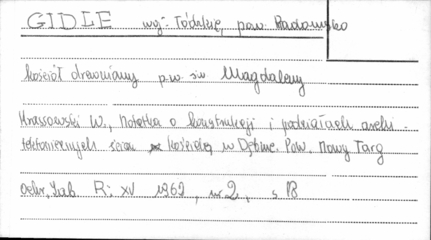 GIDLE woj. Łódzkie, pow. Radomsko
kościół drewniany p.w. św Magdaleny
Krassowski W., Notatka o konstrukcji i podziałach architektonicznych ścian kościoła w Dębnie. Pow. Nowy Targ
Ochr. Zab. R: XV 1962, nr 2, s 13